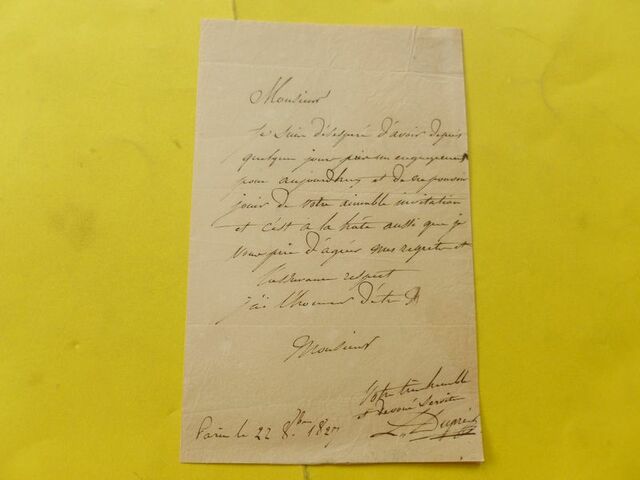 Monsieur
Je suis désespéré d'avoir depuis
quelques jours pris un engagement
pour aujourdhuy et de ne pouvoir
jouir de votre aimable invitation
et c'est a la hâte aussi que je
vous prie d'agréer mes regrets et
respect
j'ai l'honneur d'être
Monsieur
Votre très humble
et dévoué Servite
L. Dupré
Paris le 22 8bre 1827